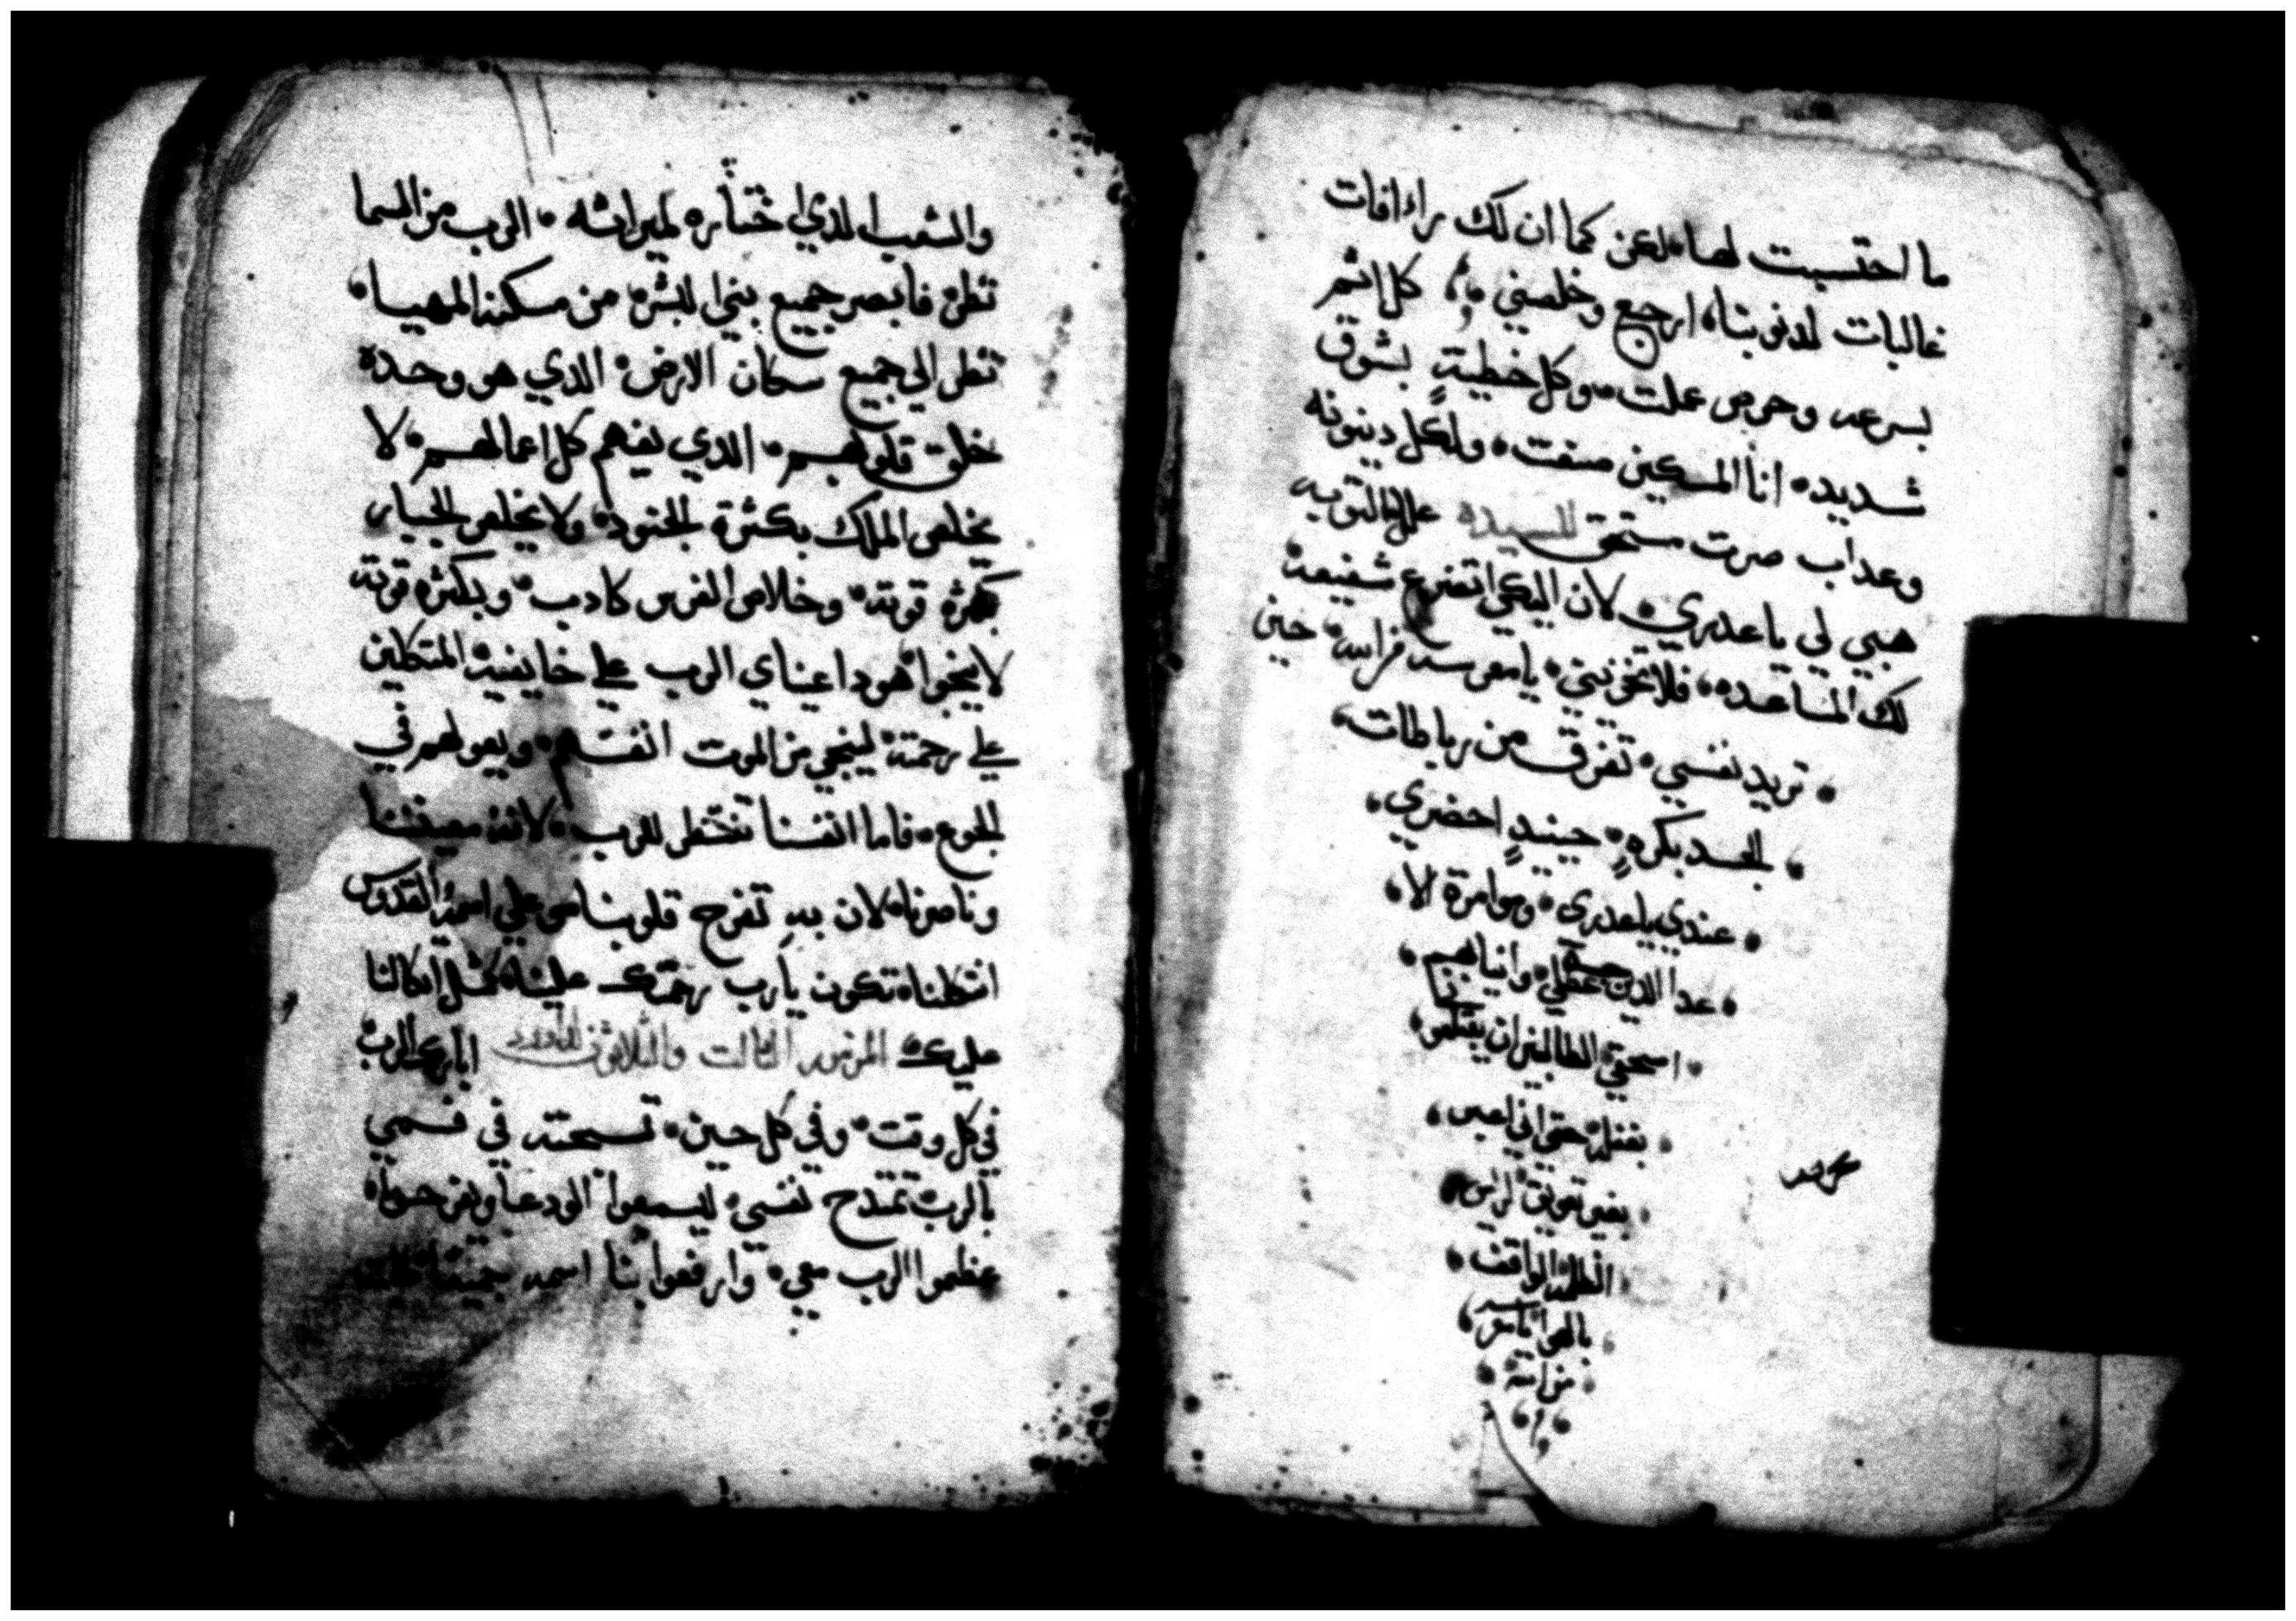 ما احتسبت لها، لكن كما ان لك راافات
غالبات لدنوبنا، ارجع وخلصني ؞ كل اثم
بسرعه وحرص عملت ؞ وكل خطية بشوق
شديد ؞ انا المسكين صنعت ؞ ولكل دينونه
وعداب صرت مستحق للسيده علل التوبه
هبي لي يا عدري ؞ لان اليكي اتضرع شفيعة
لك المساعده، فلا تخزنني ؞ يا معرسه فراسه ؞ حين
؞ تريد نفسي ؞ تفرق من رباطات،
؞ الجسد بكره ؞ حينيد احضري،
؞ عندي يا عدري ؞ وموامرة الا،
؞ عدا الدين عقلي وانيابهم ؞
؞ اسحقي الطالبين ان يبتلعو،
؞ بفضله حتى اني اعبر،
؞ بغير تعويق لراس
؞ الظلمه الواقف ؞
؞ بالهوا ياعرسه،
؞ من امة ؞
محرحر
والشعب الدي اختاره لميراثه ؞ الرب من السما
نظر ؞ فابصر جميع بني البشر ؞ من مسكنه المهيا ؞
نظر الي جميع سكان الارض ؞ الدي هو وحده
خلق قلوبهم ؞ الدي يفهم كل اعمالهم ؞ لا
يخلص الملك بكثرة الجنود ؞ ولا يخلص الجبار
بكثرة قوته ؞ وخلاص الفرس كادب ؞ وبكثره قوته
لا ينجوا ؞ هودا عيناي الرب علي خايفيه المتكلين
علي رحمته ؞ لينجي من الموت انفسهم ؞ ويعولهم في
الجوع ؞ فاما انفسنا تنتظر للرب ؞ لانه معيننا
وناصرنا ؞ لان به تفرح قلوبنا ؞ وعلي اسمه القدوس
اتكلنا ؞ تكون يارب رحمتك علينا ؞ كمثل اتكالنا
عليك ؞ المزمور الثالت والثلاثون لداوود ابارك الرب
في كل وقت ؞ وفي كل حين ؞ تسبحته في فمي
بالرب تمتدح نفسي ؞ ليسمعوا الودعا ويفرحوا ؞
عظموا الرب معي ؞ وارفعوا بنا اسمه جميعا